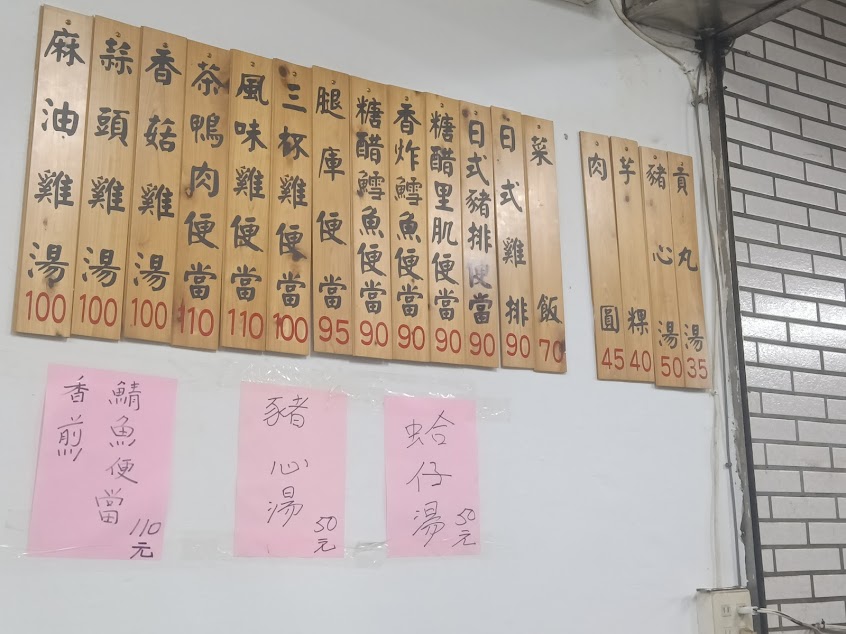 麻油雞湯100
蒜頭雞湯100
香菇雞湯100
茶鴨肉便當110
風味雞便當110
三杯雞便當100
腿庫便當95
糖醋鱈魚便當90
香炸鱈魚便當90
糖醋里肌便當90
日式豬排便當90
日式雞排90
菜飯70
肉圓45
芋粿40
豬心湯50
貢丸湯35
香煎
鯖魚便當
110元
豬心湯
50元
蛤仔湯
50元